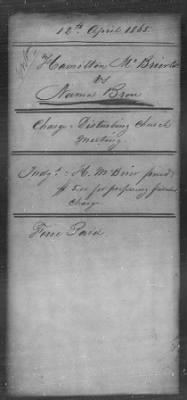 12th April 1865.
Hamilton McBrier
vs
Names Brow
Charge: Disturbing Church
Meeting.
Judgt: H. McBrier fined
$5.00 for preferring
Charge.
Fine Paid